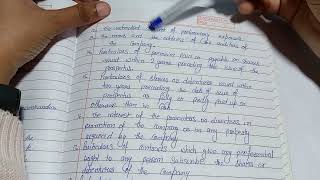 of the estimated amount of preliminary expenses
the names and the address of the auditors of
the Company.
Particulars of premium paid or payable on shares
issued within 2 years preceding the issue of the
prospectus
Particulars of shares or debentures issued within
two years preceding the date of issue of
prospectus as fully or partly paid up or
otherwise than in cash
the interest of the promoters or directors in
promotion of the Company or in any property
acquired by the Company
Particulars of contracts which give any preferential
right to any person subscribe the shares or
debentures of the Company